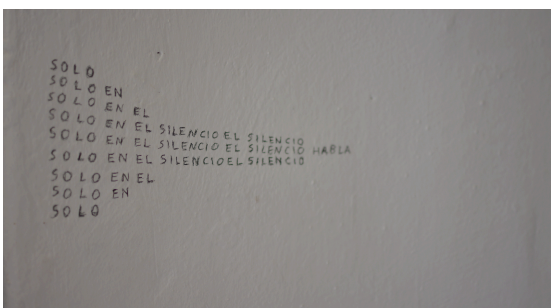 SOLO
SOLO EN
SOLO EN EL
SOLO EN EL SILENCIO EL SILENCIO
SOLO EN EL SILENCIO EL SILENCIO HABLA
SOLO EN EL SILENCIO EL SILENCIO
SOLO EN EL
SOLO EN
SOLO